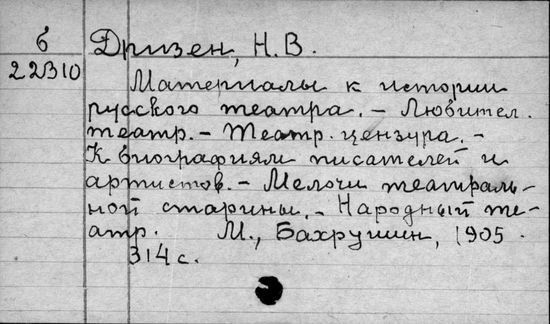 б
22310
Дризен, Н.В.
Материалы к истории
русского театра. – Любител.
театр. – Театр. цензура. –
К биографиям писателей и
артистов. – Мелочи театраль-
ной старины. – Народный те-
атр. М., Бахрушин, 1905.
314 с.